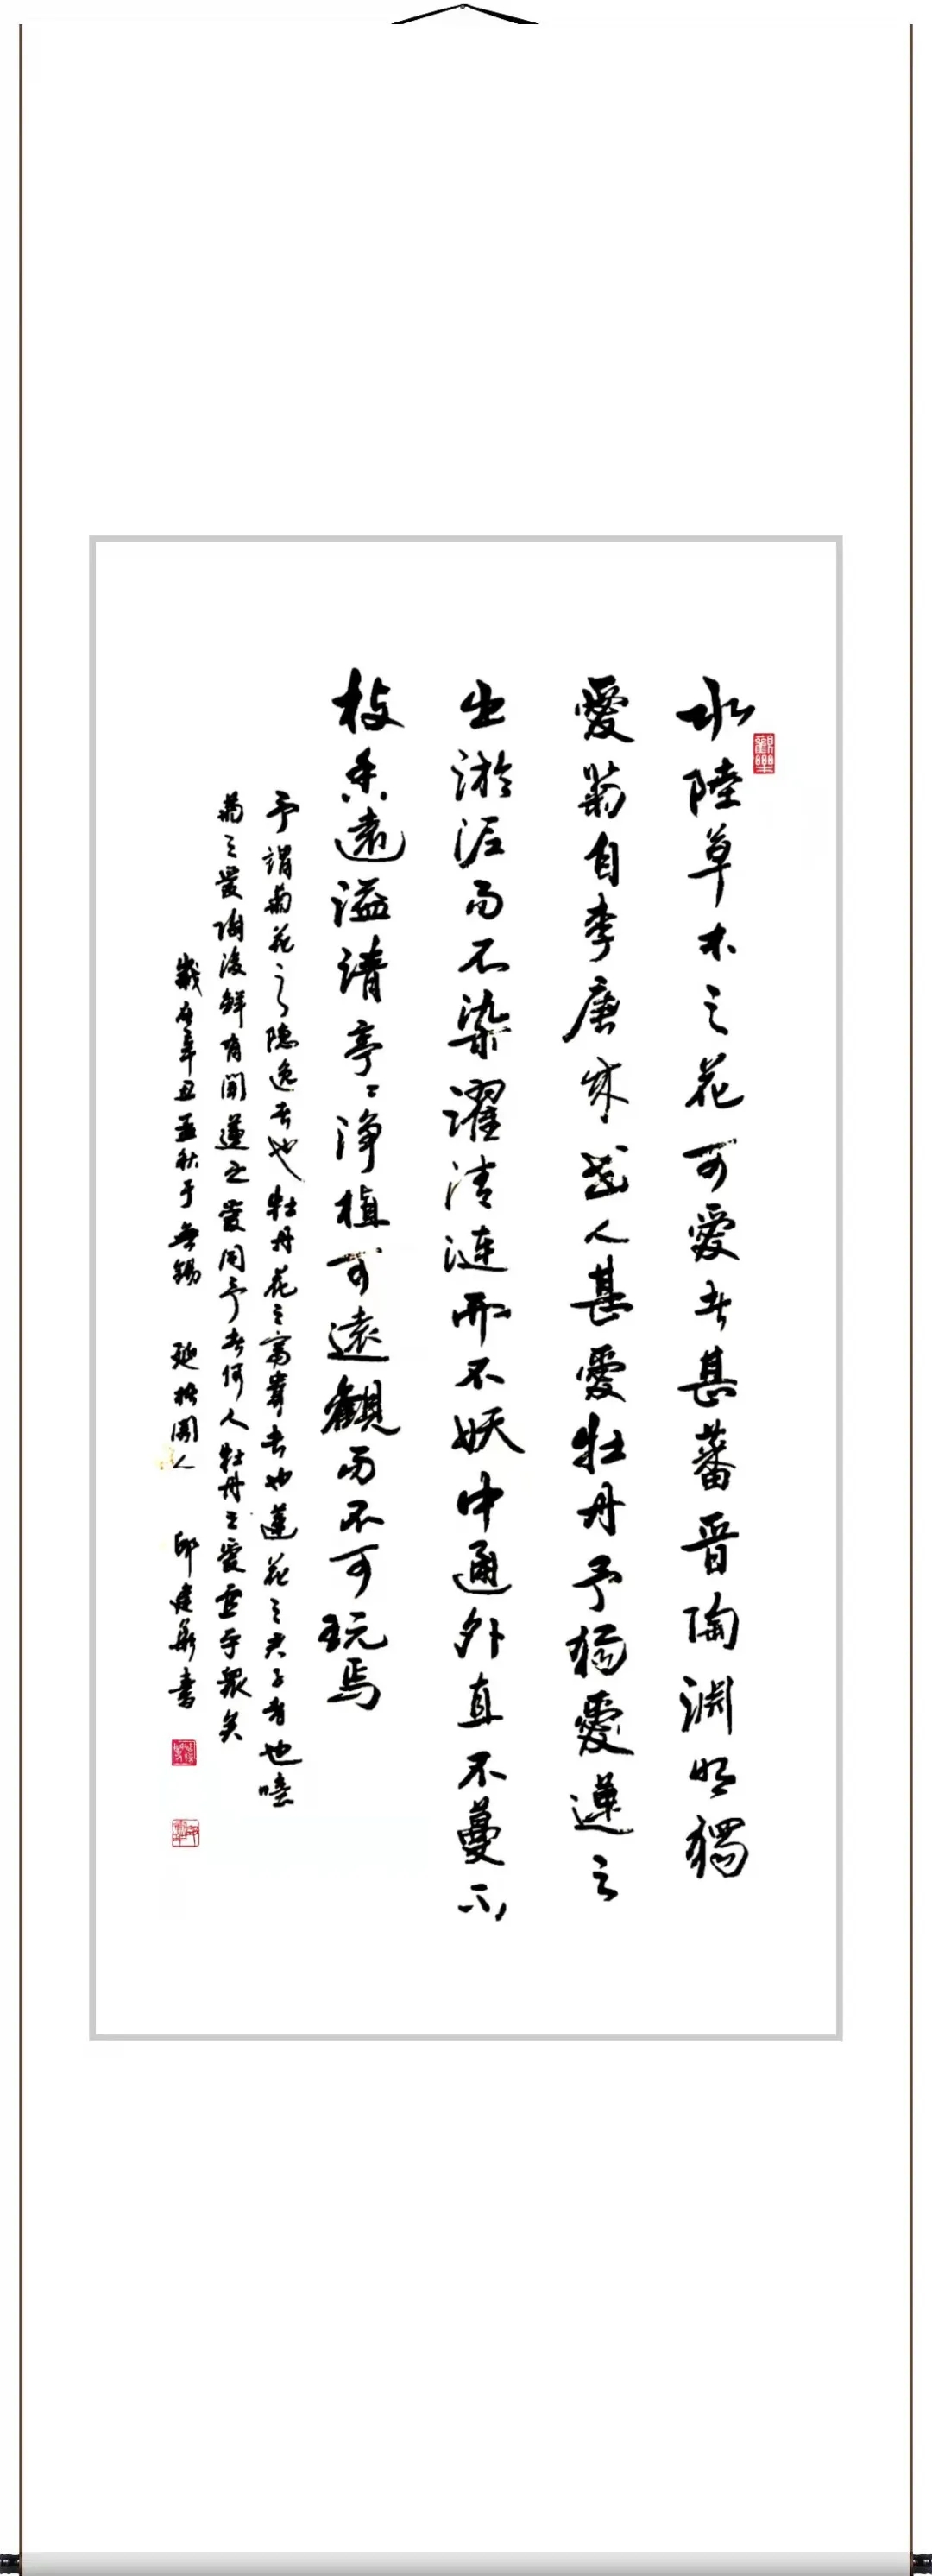 水陸草木之花可愛者甚蕃晉陶淵明獨
愛菊自李唐來世人甚愛牡丹予獨愛蓮之
出淤泥而不染濯清漣而不妖中通外直不蔓不
枝香遠溢清亭〻淨植可遠觀而不可玩焉
予謂菊花之隐逸者也牡丹花之富貴者也蓮花之君子者也噫
菊之愛陶後鮮有聞蓮之愛同予者何人牡丹之愛宜乎眾矣
歲在辛丑孟秋于無錫 閣人 邱建新書